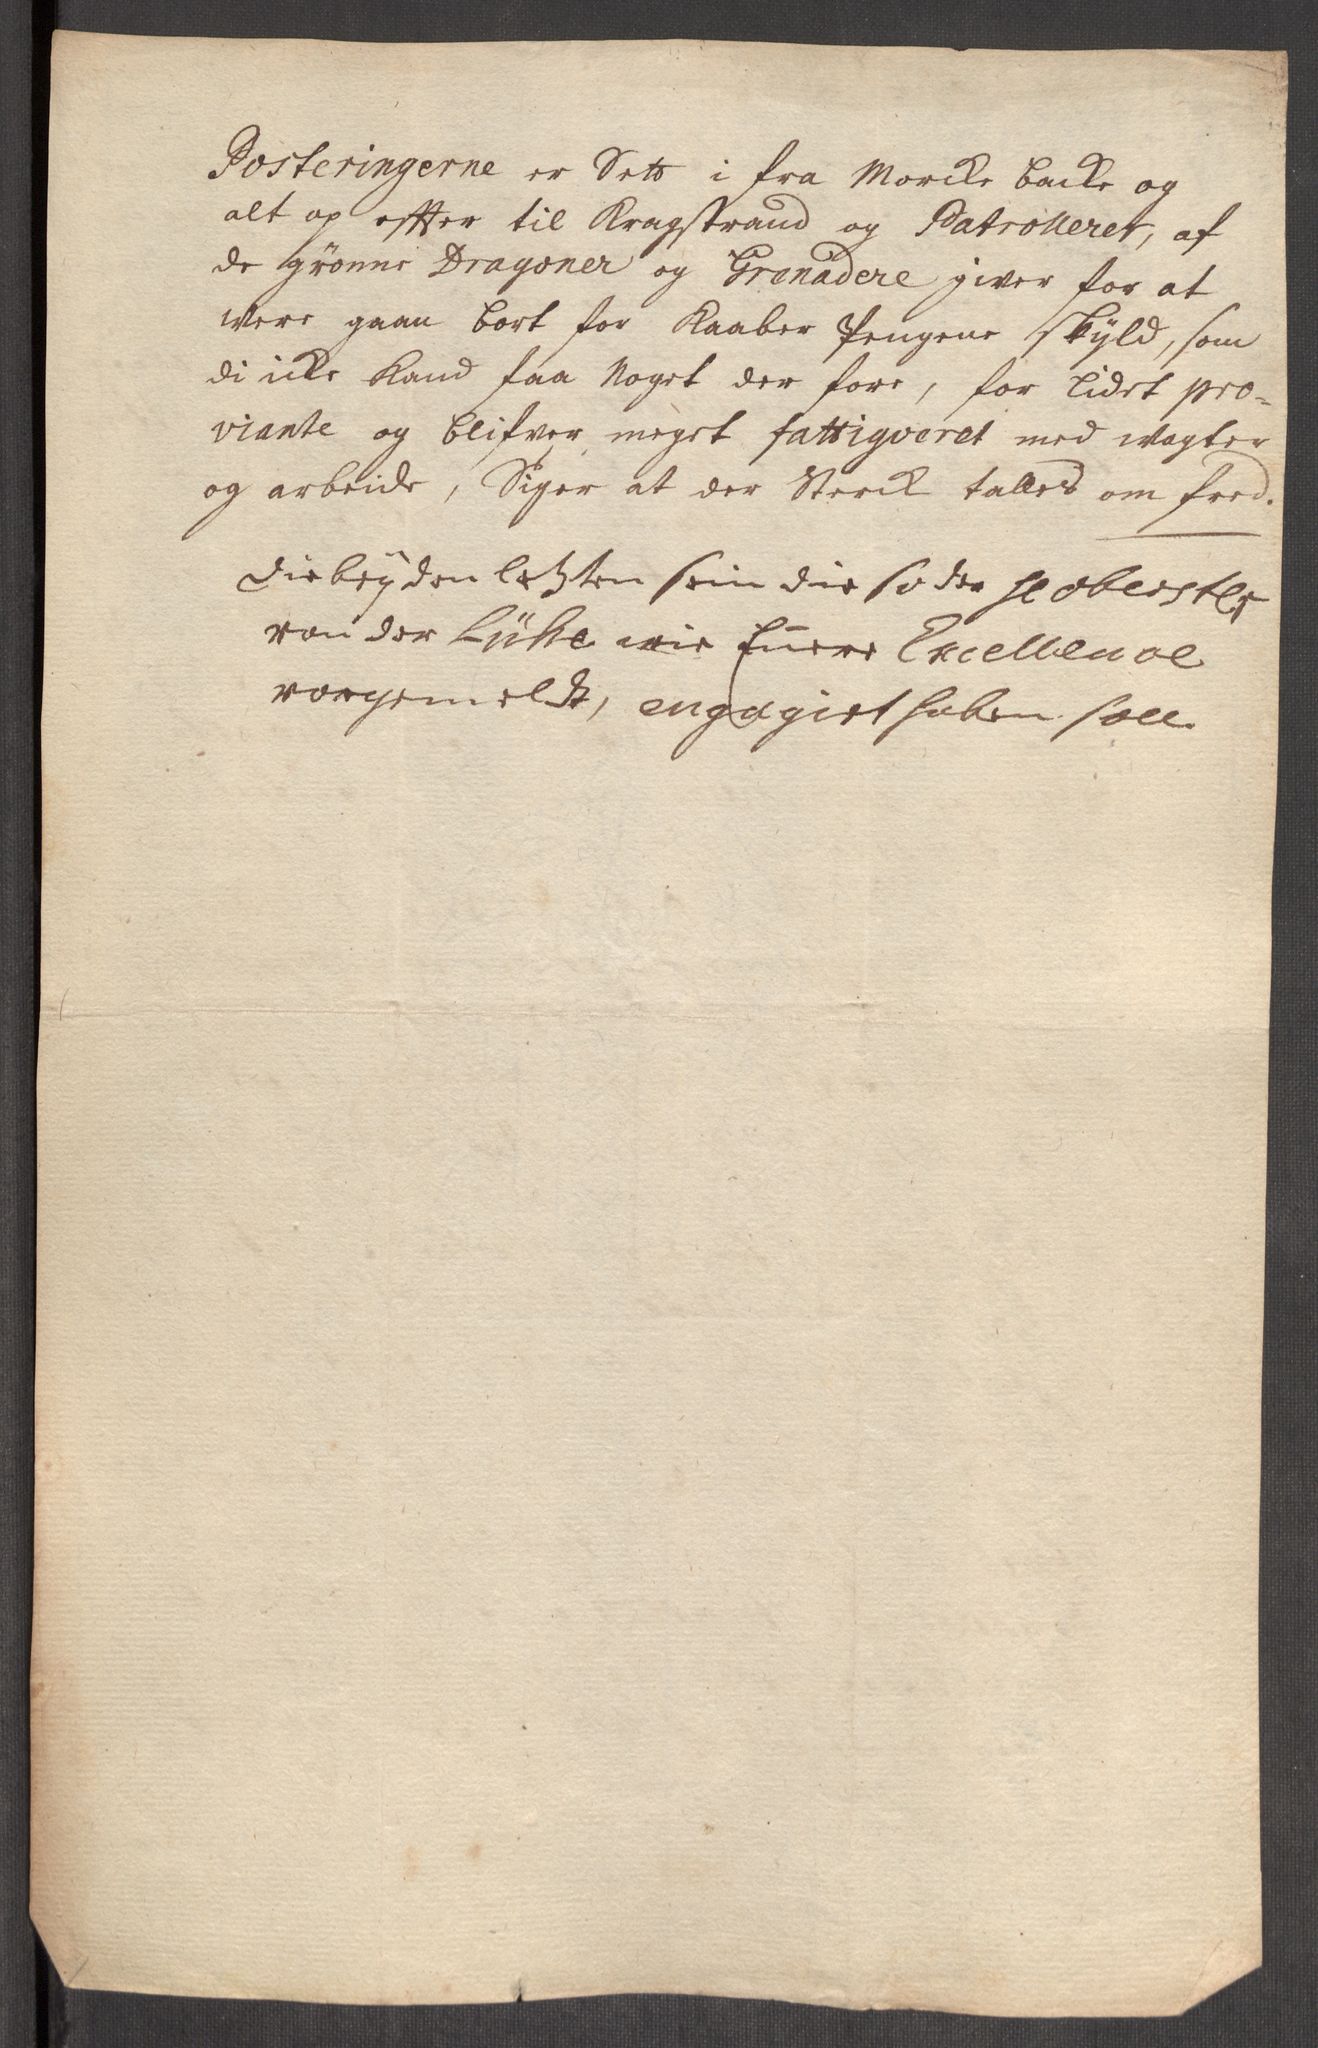 Posteringerne er Sett i fra Morcke backe og
alt op effter til Kragstrand og Patrolleret, af
de grønne Dragoner og Grenadere giver for at
were gaan bort for Kaaber Pengene skyld, som
di icke Kand faa Noget der fore, for lidet pro=
viante og blifver meget fattigveret med wagter
og arbeide, Siger at der Sterck talles om fred.
die beyden letzten sein die so der H oberster
von der Lühe wie Euere Excellence
vorgemeldt, engagirt haben soll.